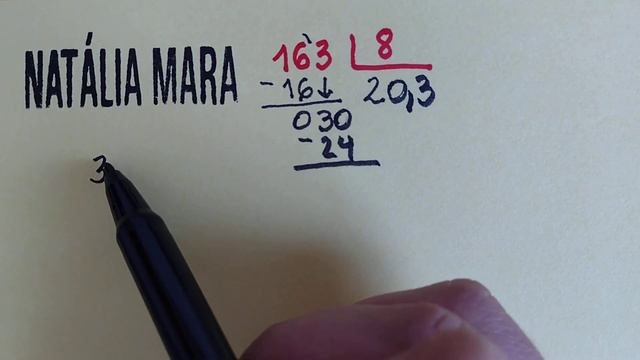 NATÁLIA MARA
163 8
-16↓ 20,3
030
-24
3